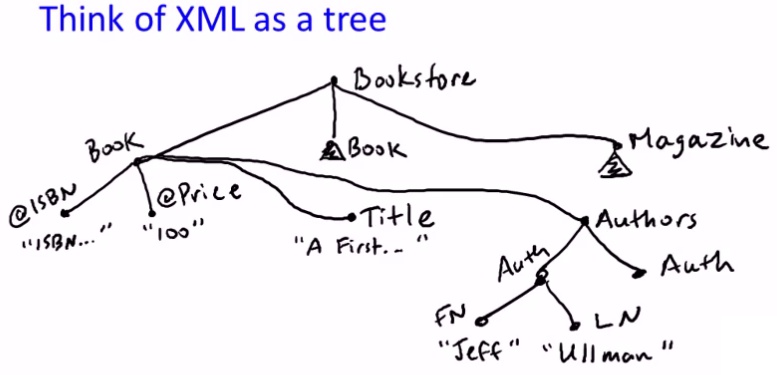 Think of XML as a tree
Bookstore
Book
Book
Magazine
@ISBN
"ISBN..."
@Price
"100"
Title
"A First..."
Authors
Auth
Auth
FN
"Jeff"
LN
"Ullman"